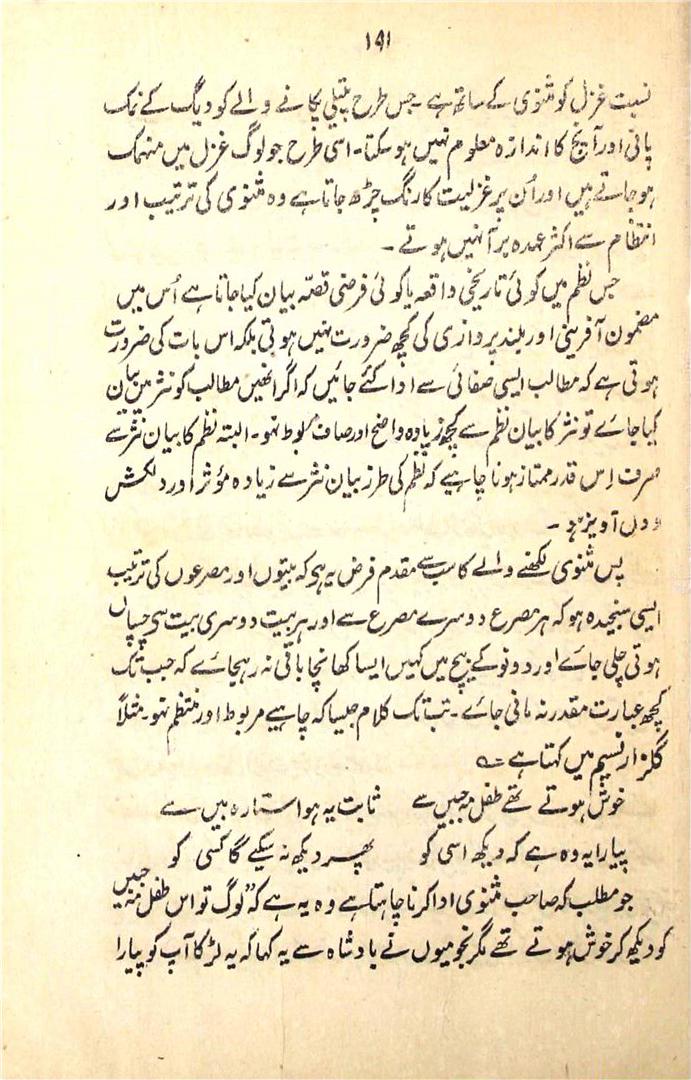 ۱۹۱
نسبت غزل کو مثنوی کے ساتھ ہے۔ جس طرح پتیلی پکانے والے کو دیگ کے نمک
پانی اور آنچ کا اندازہ معلوم نہیں ہو سکتا۔ اسی طرح جو لوگ غزل میں منہمک
ہو جاتے ہیں اور اُن پر غزلیت کا رنگ چڑھ جاتا ہے وہ مثنوی کی ترتیب اور
انتظام سے اکثر عہدہ برآ نہیں ہوتے۔
جس نظم میں کوئی تاریخی واقعہ یا کوئی فرضی قصّہ بیان کیا جاتا ہے اُس میں
مضمون آفرینی اور بلند پروازی کی کچھ ضرورت نہیں ہوتی بلکہ اس بات کی ضرورت
ہوتی ہے کہ مطالب ایسی صفائی سے ادا کئے جائیں کہ اگر انھیں مطالب کو نثر میں بیان
کیا جائے تو نثر کا بیان نظم سے کچھ زیادہ واضح اور صاف مربوط نہو۔ البتہ نظم کا بیان نثر سے
صرف اِس قدر ممتاز ہونا چاہیے کہ نظم کی طرز بیان نثر سے زیادہ مؤثر اور دلکش
و دل آویز ہو۔
پس مثنوی لکھنے والے کا سب سے مقدم فرض یہ ہی کہ بیتوں اور مصرعوں کی ترتیب
ایسی سنجیدہ ہو کہ ہر مصرع دوسرے مصرع سے اور ہر بیت دوسری بیت سی چسپاں
ہوتی چلی جائے اور دونو کے بیچ میں کہیں ایسا کھانچا باقی نہ رہجائے کہ جب تک
کچھ عبارت مقدر نہ مانی جائے۔ تب تک کلام جیسا کہ چاہیے مربوط اور منتظم نہو۔ مثلاً
گلزار نسیم میں کہتا ہے ؎
خوش ہوتے تھے طفل مہ جبیں سے ثابت یہ ہوا ستارہ بیں سے
پیارا یہ وہ ہے کہ دیکھ اسی کو پھر دیکھ نہ سکیے گا کسی کو
جو مطلب کہ صاحب مثنوی ادا کرنا چاہتا ہے وہ یہ ہے کہ "لوگ تو اس طفل مہ جبیں
کو دیکھ کر خوش ہوتے تھے مگر نجومیوں نے بادشاہ سے یہ کہا کہ یہ لڑکا آپ کو پیارا